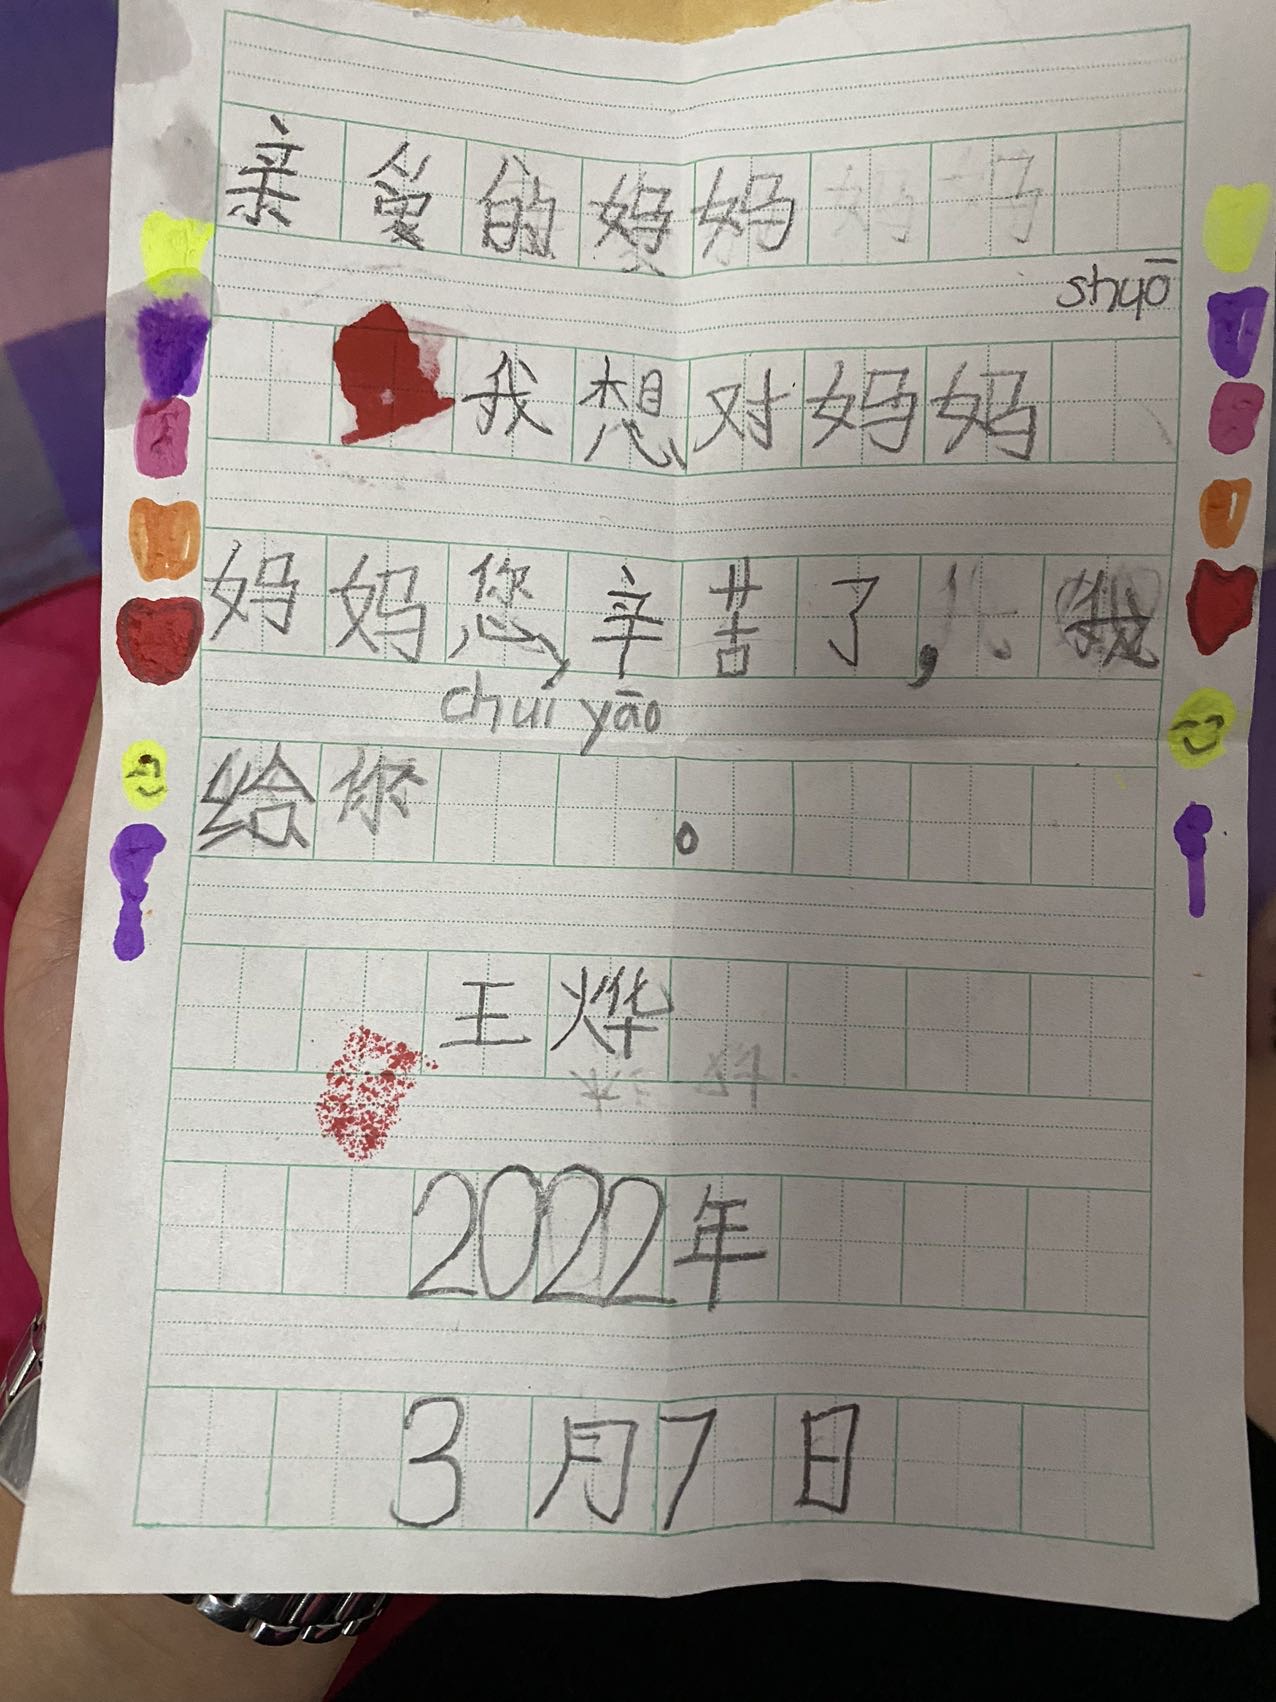 亲爱的妈妈
shuō
我想对妈妈
妈妈您辛苦了,我
chuí yāo
给你 。
王烨
2022年
3月7日